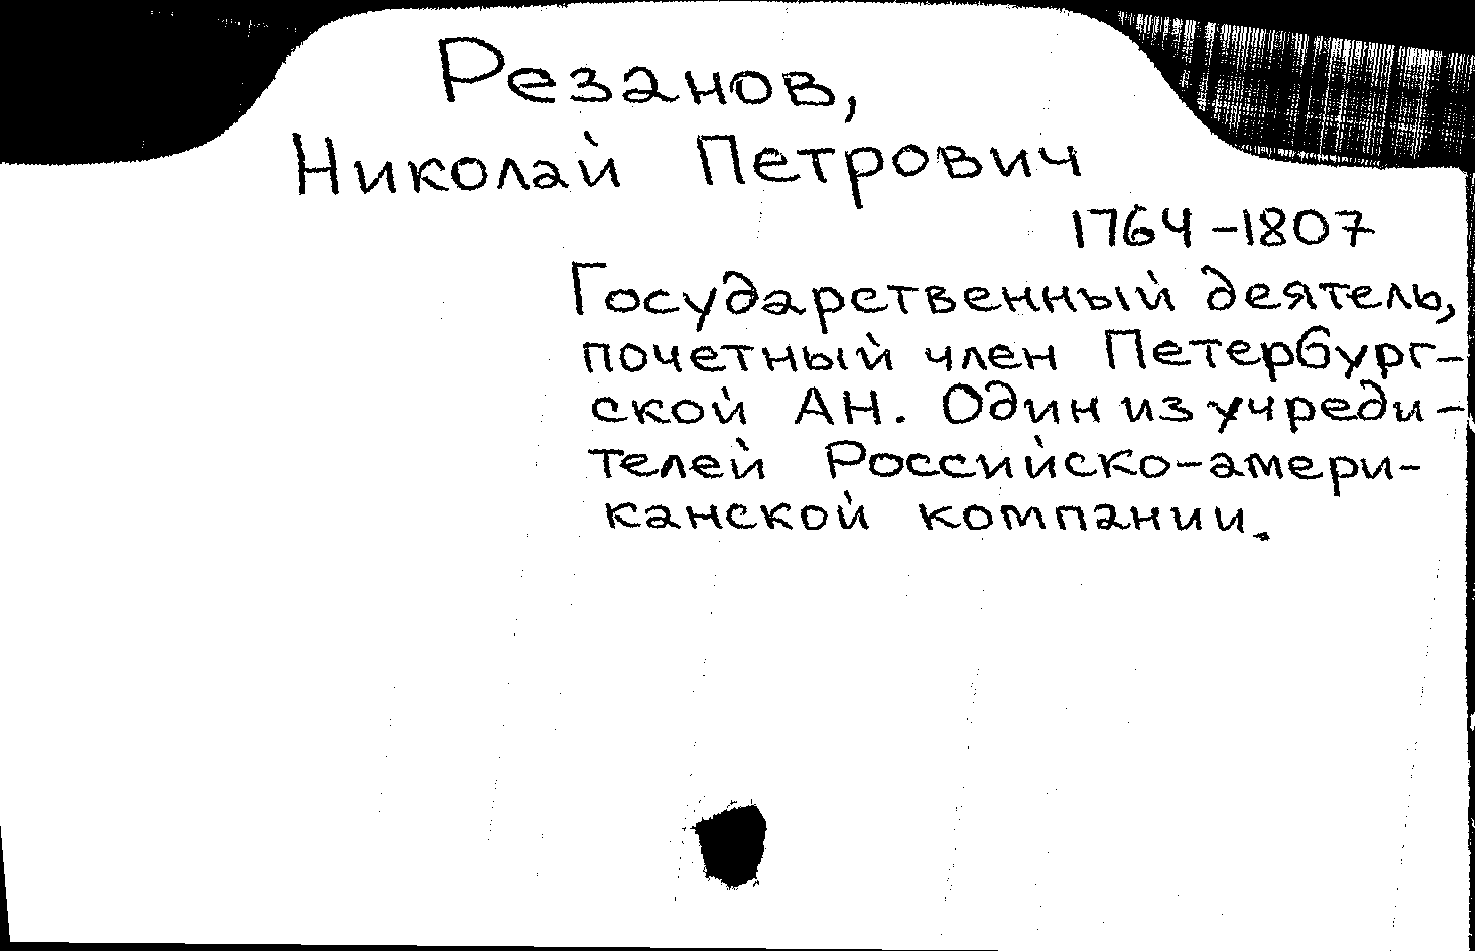 Резанов,
Николай Петрович
1764-1807
Государственный деятель,
почетный член Петербург-
ской АН. Один из учреди-
телей Российско-амери-
канской компании.